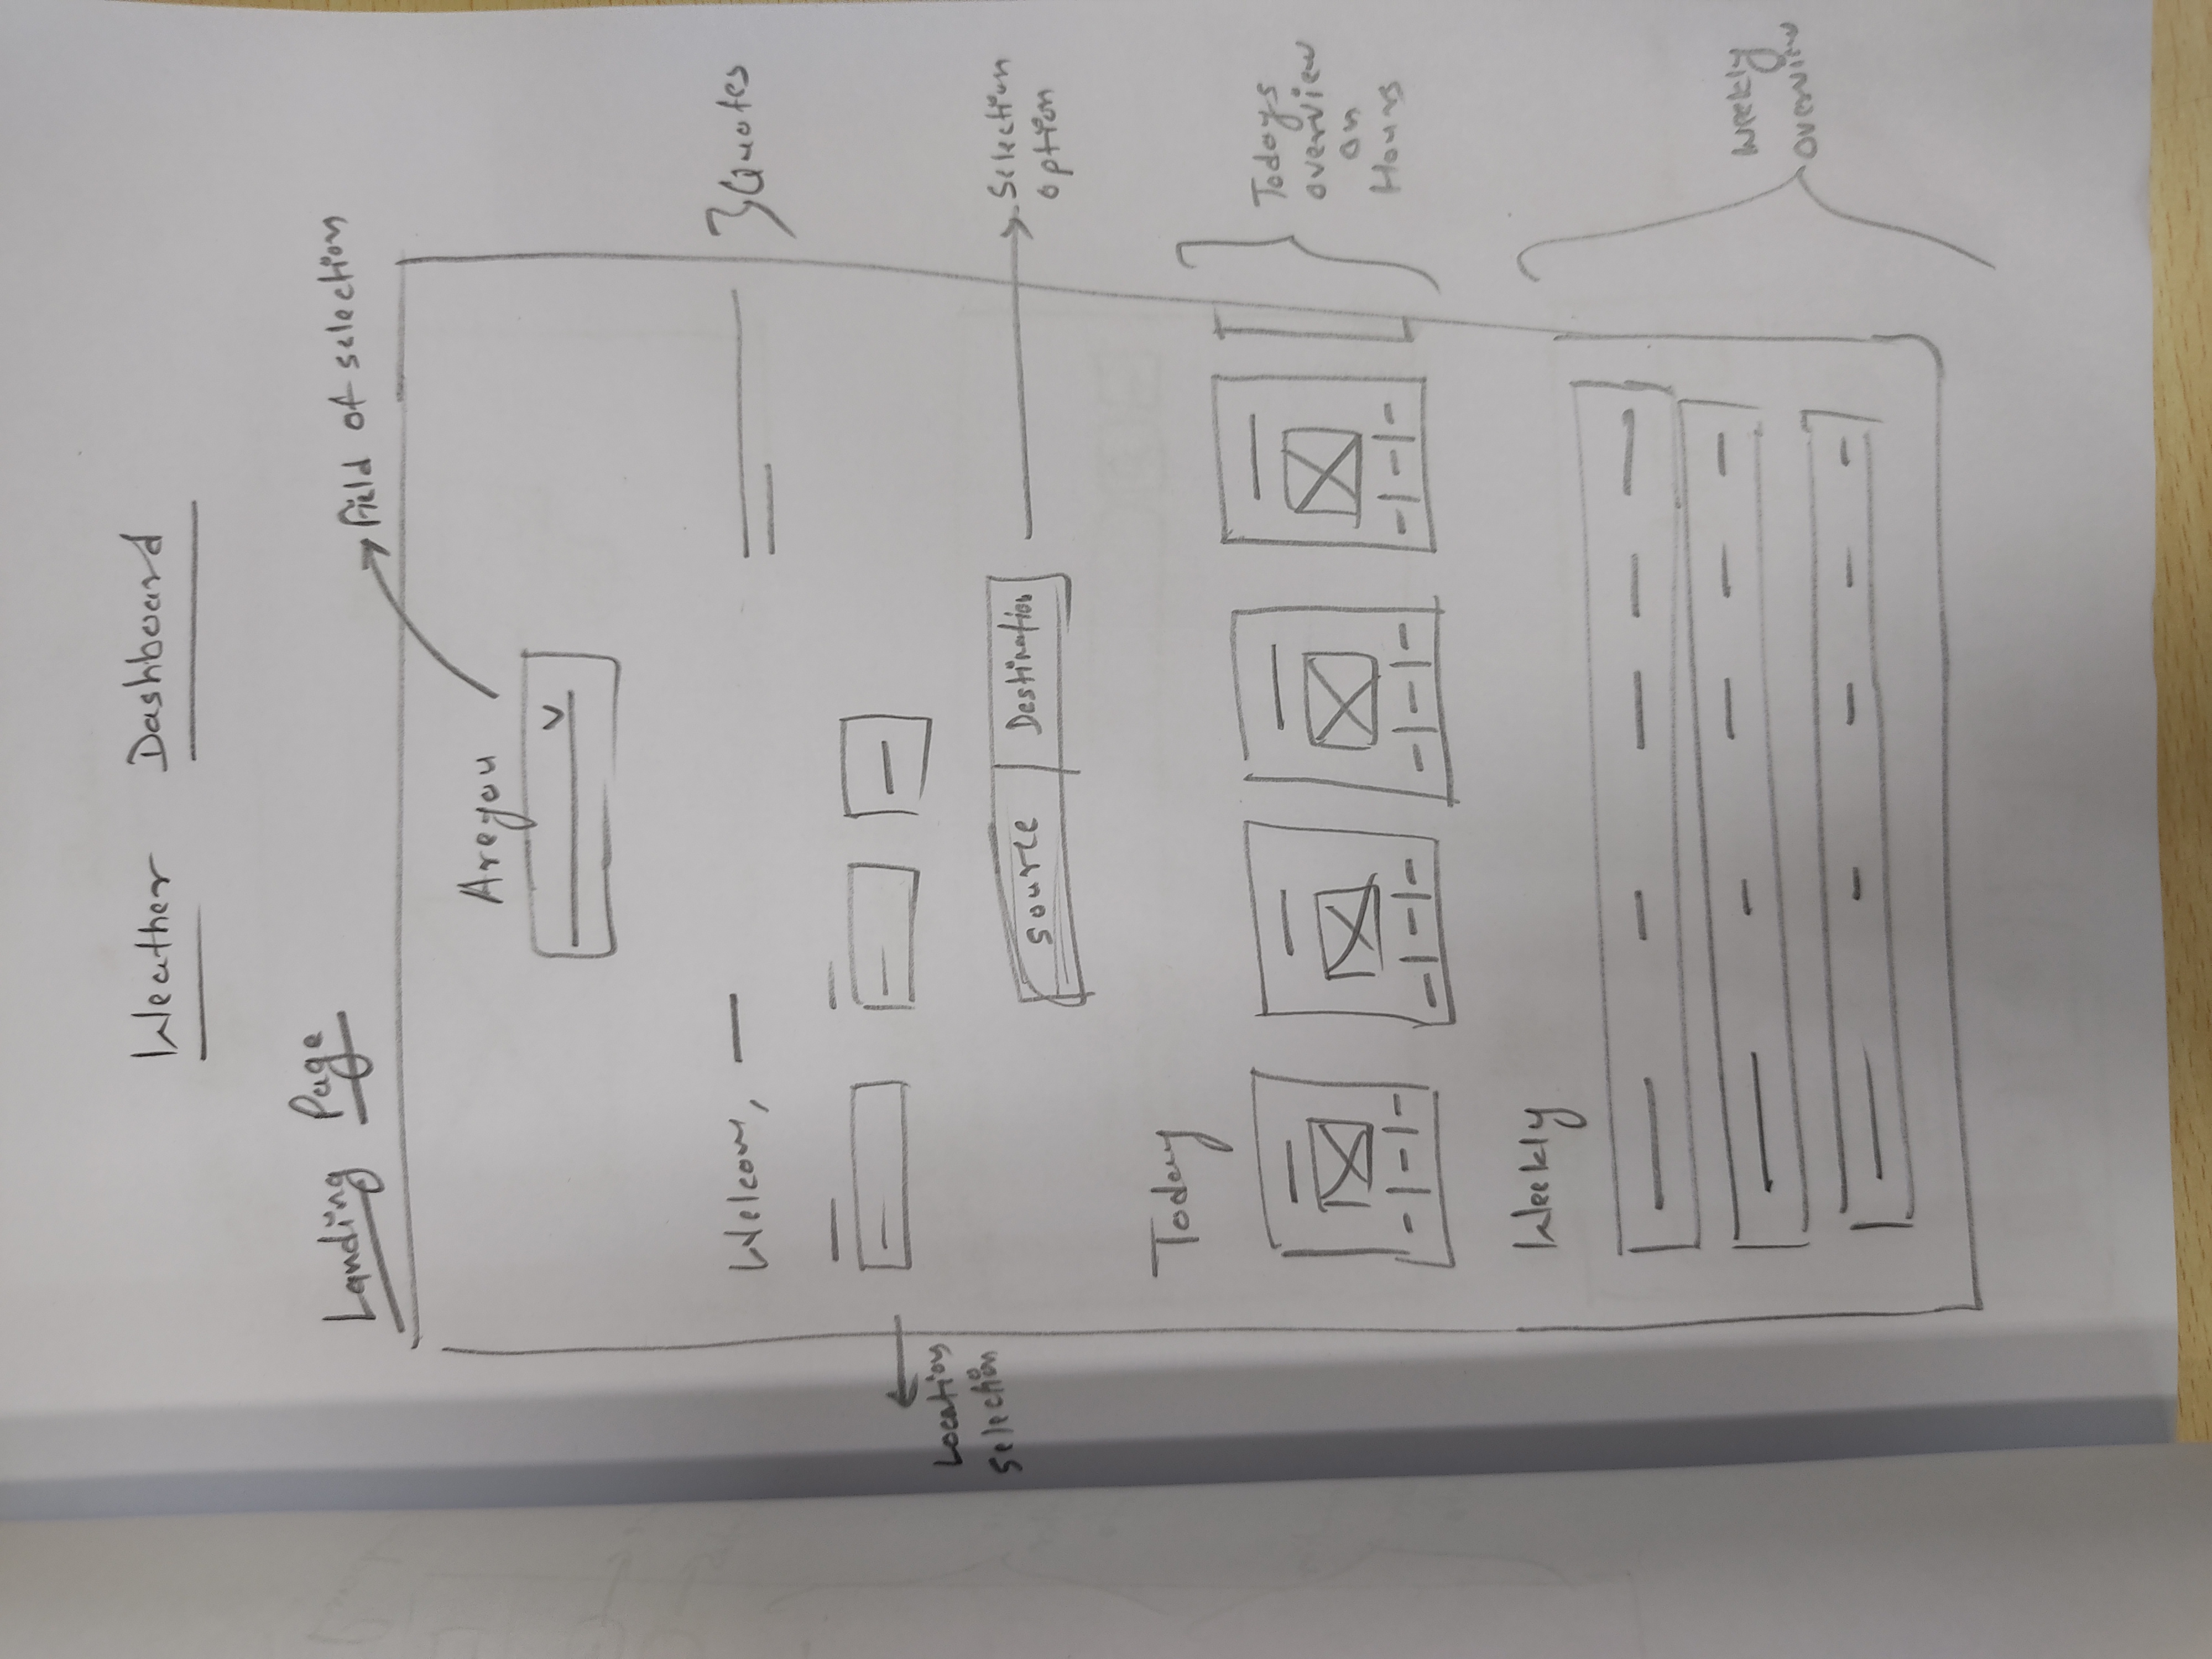 Weather Dashboard
Landing Page
Field of selection
Are you
Welcom,
Quotes
Location
selection
Source
Destination
Selection
option
Today
Todays
overview
on
Hours
Weekly
Weekly
overview